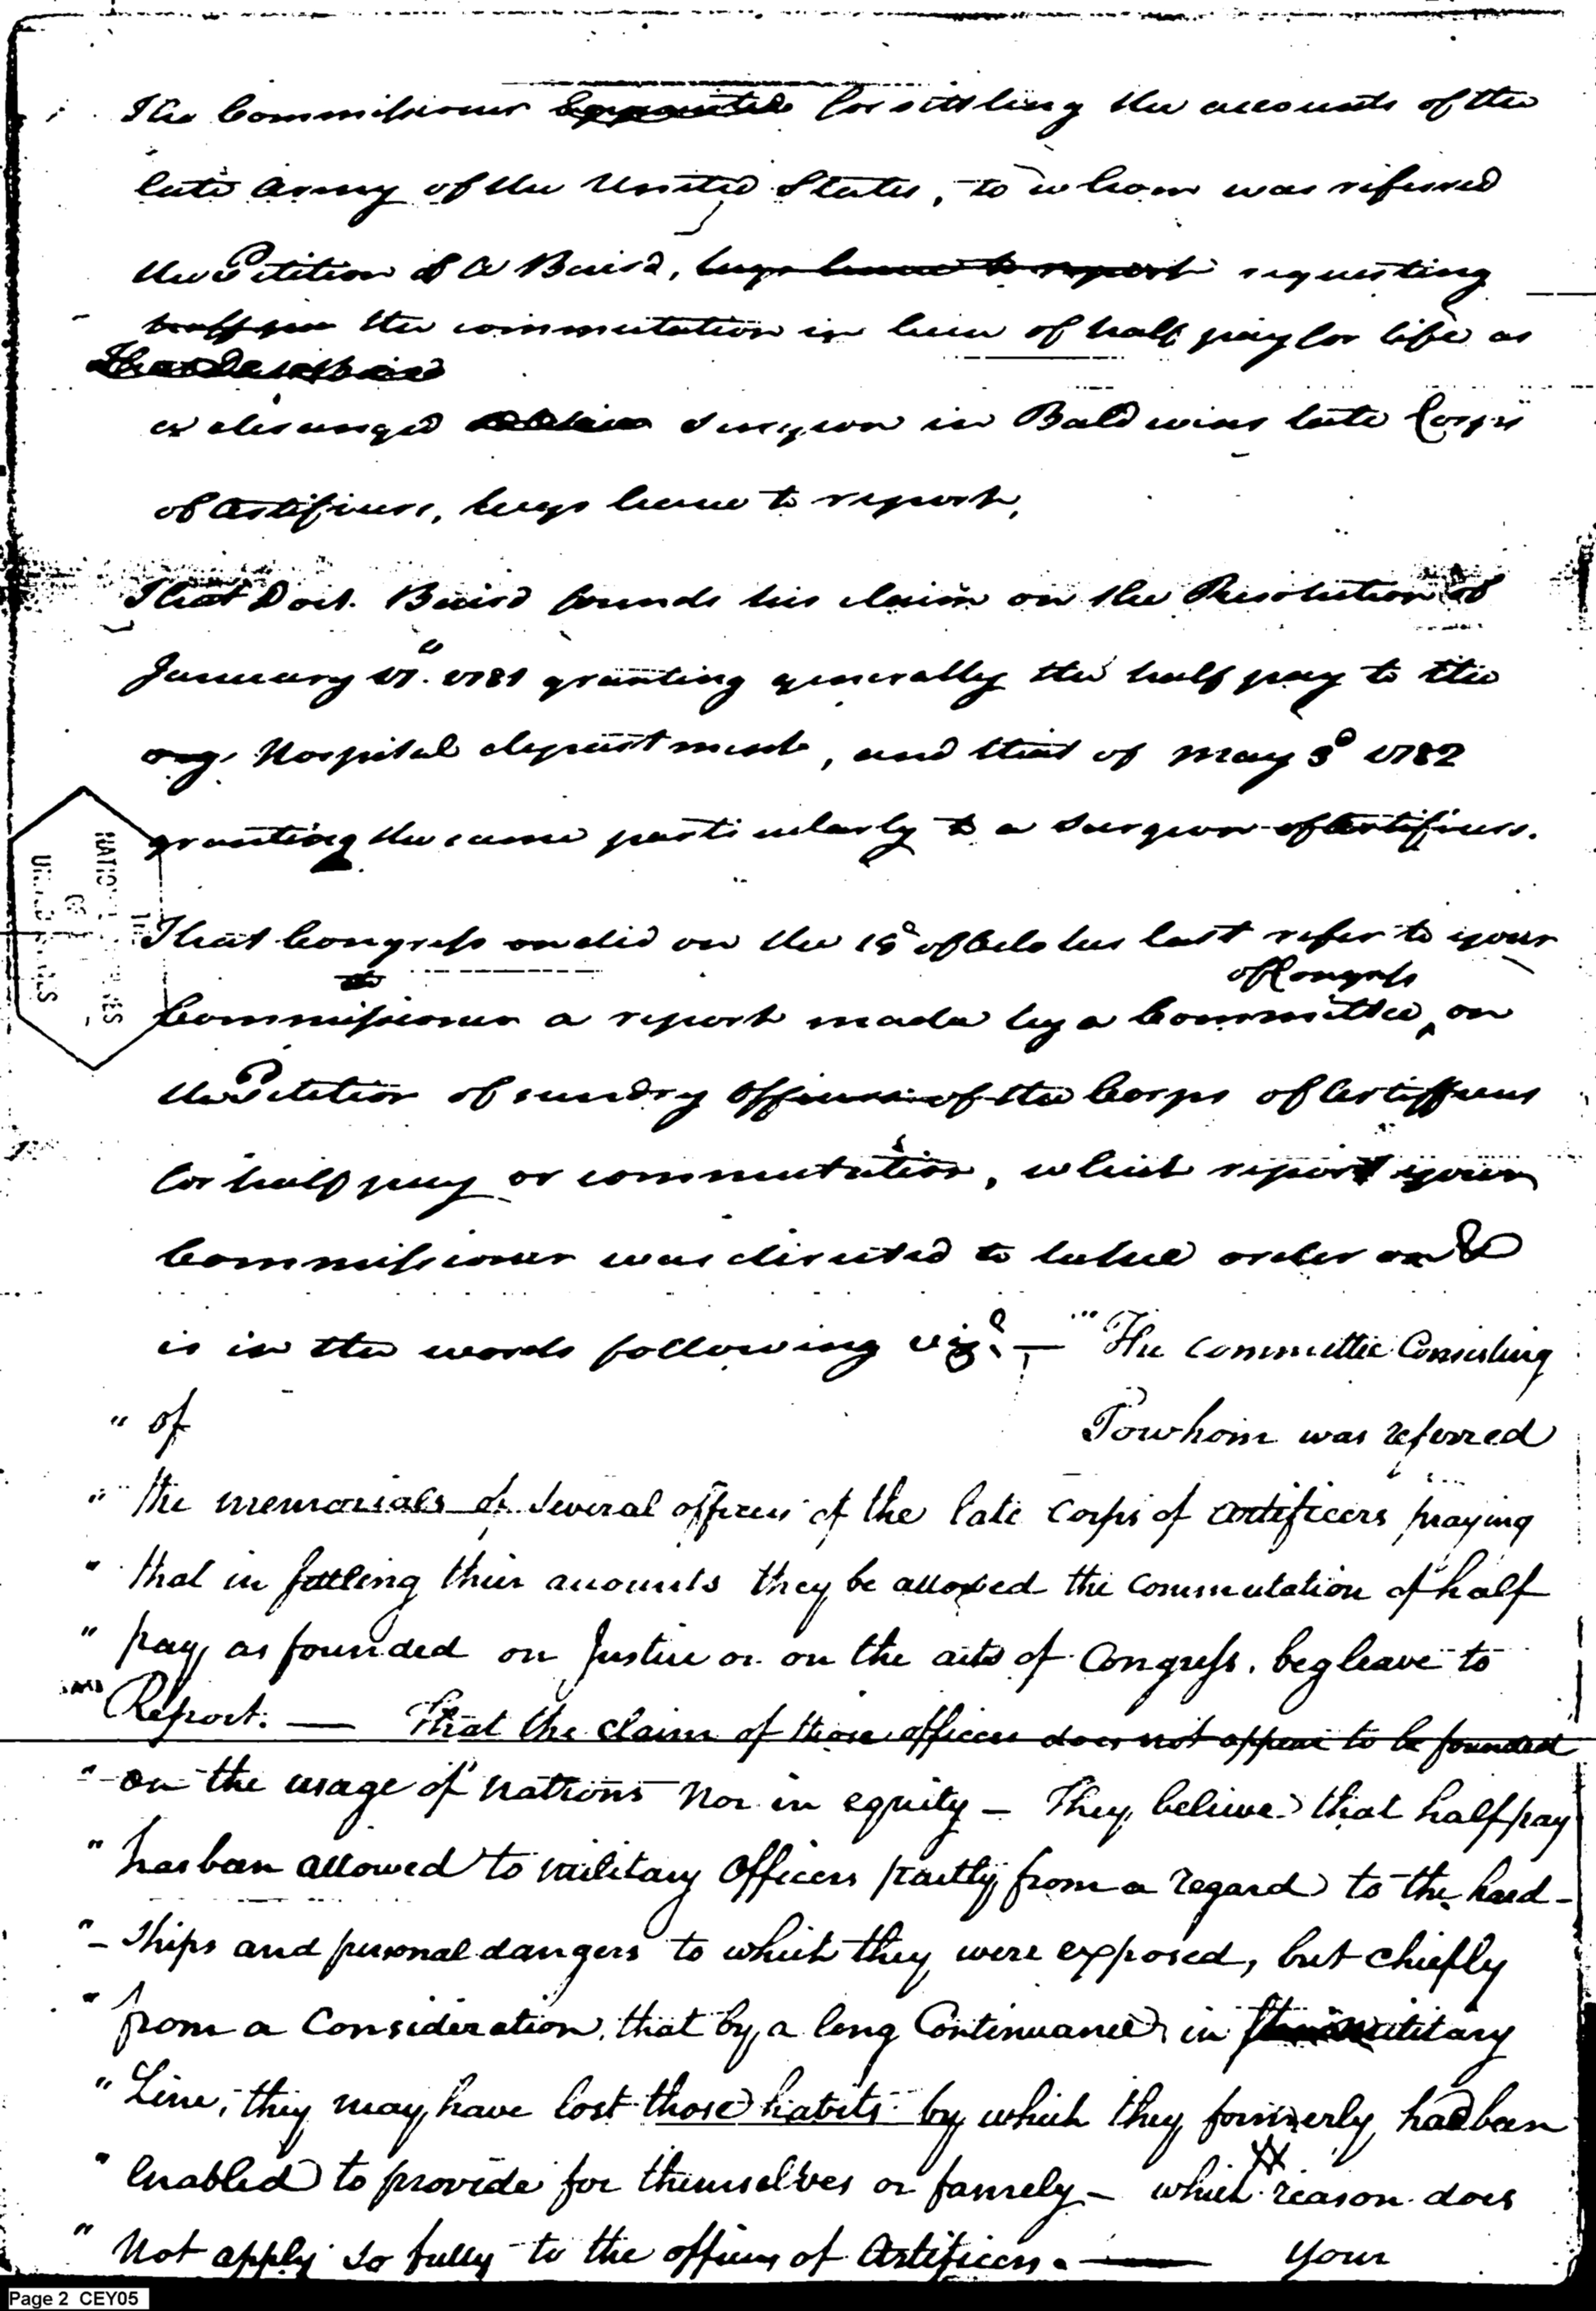 The Commissioner appointed for settling the accounts of the
late Army of the United States, to whom was referred
the Petition of A Baird, begs leave to report requesting
the commutation in lieu of half pay for life as
a deranged Surgeon in Baldwins late Corps
of Artificers, begs leave to report,
That Doct. Baird founds his claim on the Resolution of
January 17. 1781 granting generally the half pay to the
Hospital department, and that of May 3d 1782
granting the same particularly to a Surgeon of Artificers.
That Congress did on the of last refer to your
of Congress
Commissioner a report made by a Committee ^ on
the Petition of sundry Officers of the Corps of Artifficers
for half pay or commutation, which report your
Commissioner was directed to take order on &
is in the words following viz. — "The Committee Consisting
" of To whom was referred
" the memorials of several officers of the late Corps of Artificers praying
" that in settling their accounts they be allowed the Commutation of half
" pay, as founded on Justice or on the acts of Congress. beg leave to
Report. — That the claim of those officers does not appear to be founded
" on the usage of Nations Nor in equity — They believe that half pay
" has been allowed to military Officers partly from a regard to the hard-
" -ships and personal dangers to which they were exposed, but chiefly
" from a Consideration, that by a long Continuance in military
" Line, they may have lost those habits by which they formerly had been
" enabled to provide for themselves or famely — which reason does
" Not apply so fully to the officers of Artificers. — your
NATIO
ES
Page 2 CEY05